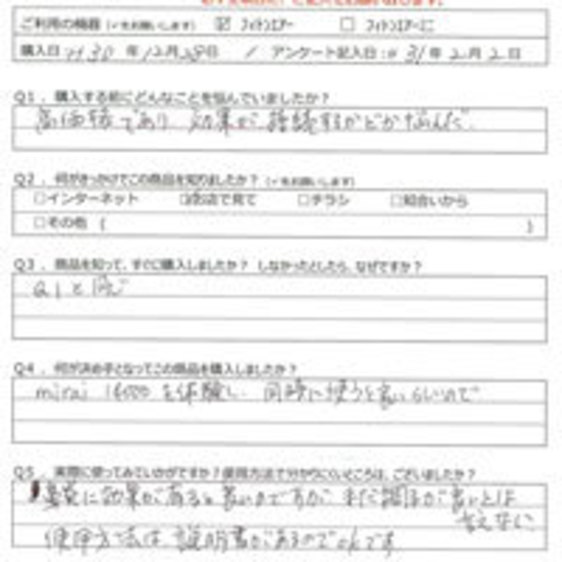 ご利用の機器（✓をお願いします） ☑ フィトンエアー □ フィトンエアーミニ
購入日：H 30 年 12月 28日 / アンケート記入日：H 31年 2月 2日
Q1．購入する前にどんなことを悩んでいましたか？
高価格であり 効果が持続するかどうか悩んだ．
Q2．何がきっかけでこの商品を知りましたか？（✓をお願いします）
□インターネット ☑お店で見て □チラシ □知合いから
□その他 ( )
Q3．商品を知って、すぐに購入しましたか？ しなかったとしたら、なぜですか？
Q1と同じ
Q4．何が決め手となってこの商品を購入しましたか？
mirai 16500 を体験し、同時に使うと良いらしいので
Q5．実際に使ってみていかがですか？使用方法で分かりにくいところは、ございましたか？
に効果があると良いのですが まだ調子が良いとは
言えない
使用方法は、説明書があるのでOKです